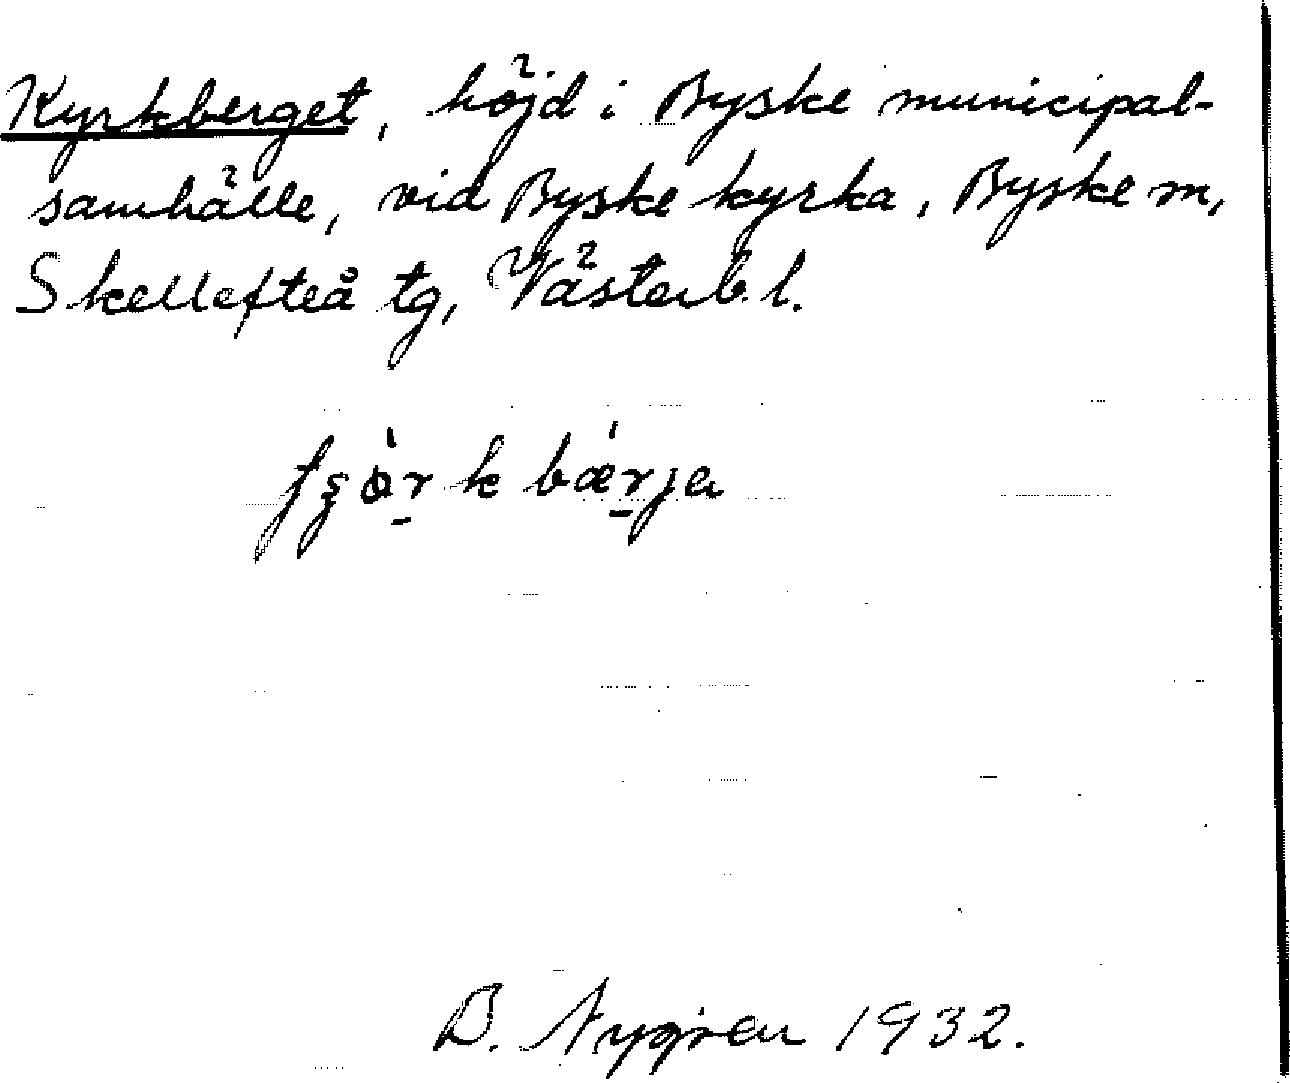 Kyrkberget, höjd i Byske municipal-
samhälle, vid Byske kyrka, Byske m,
Skellefteå tg, Västerb. l.
B. Nygren 1932.